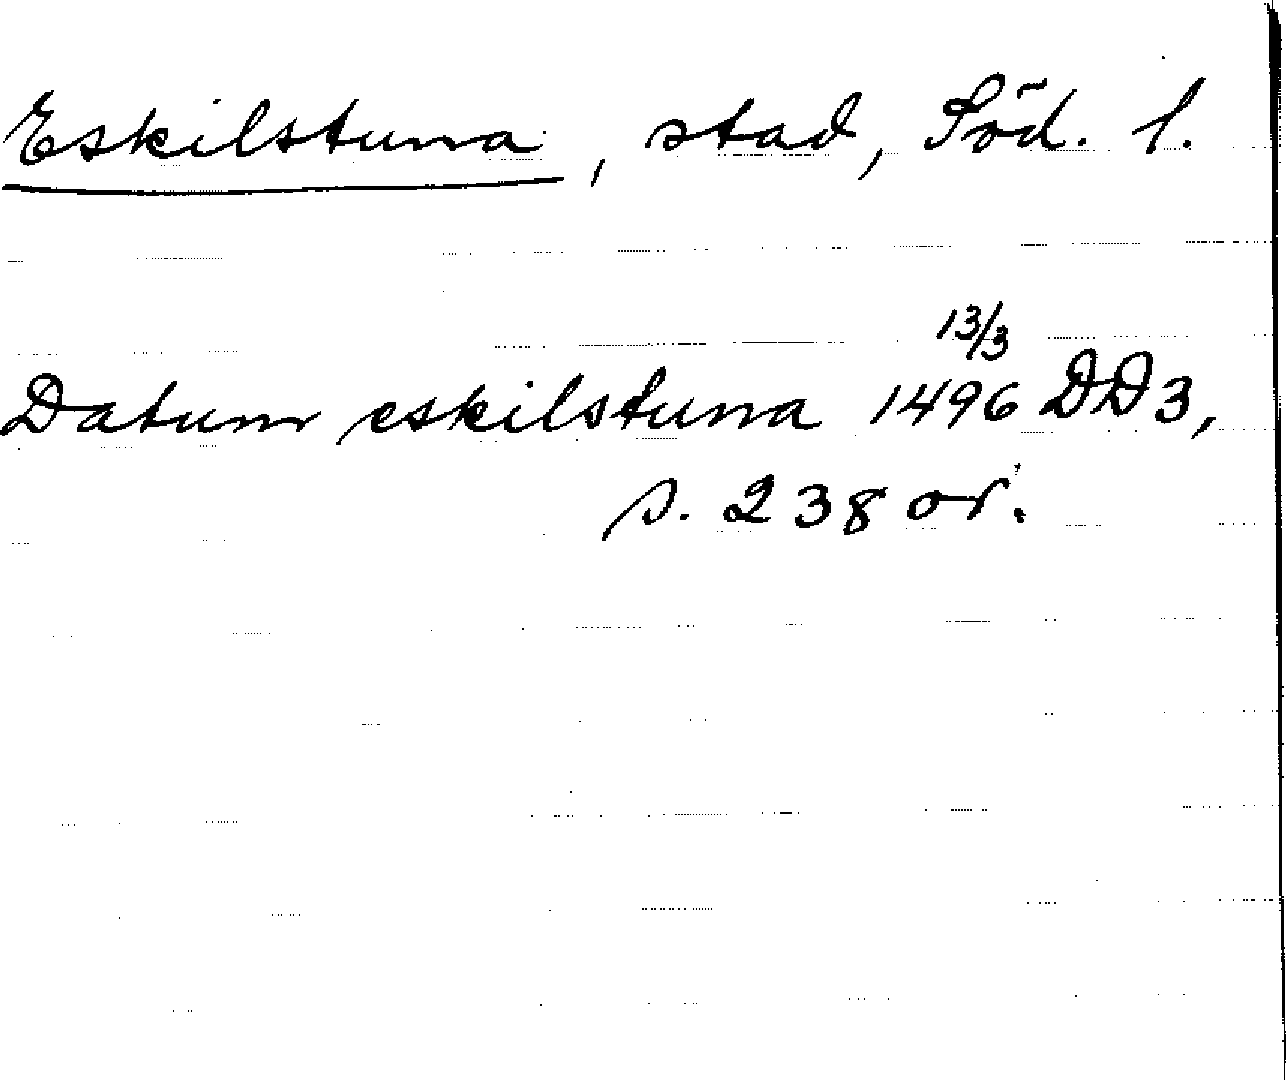 Eskilstuna, stad, Söd. l.
13/3
Datum eskilstuna 1496 DD3,
s. 238 or.